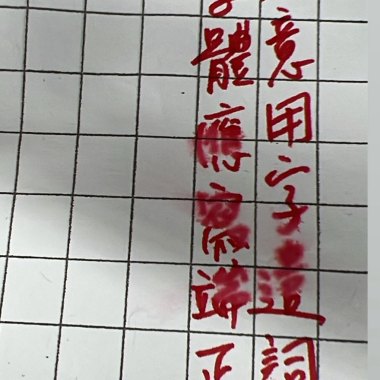 意用字遣詞
。體應寫端正